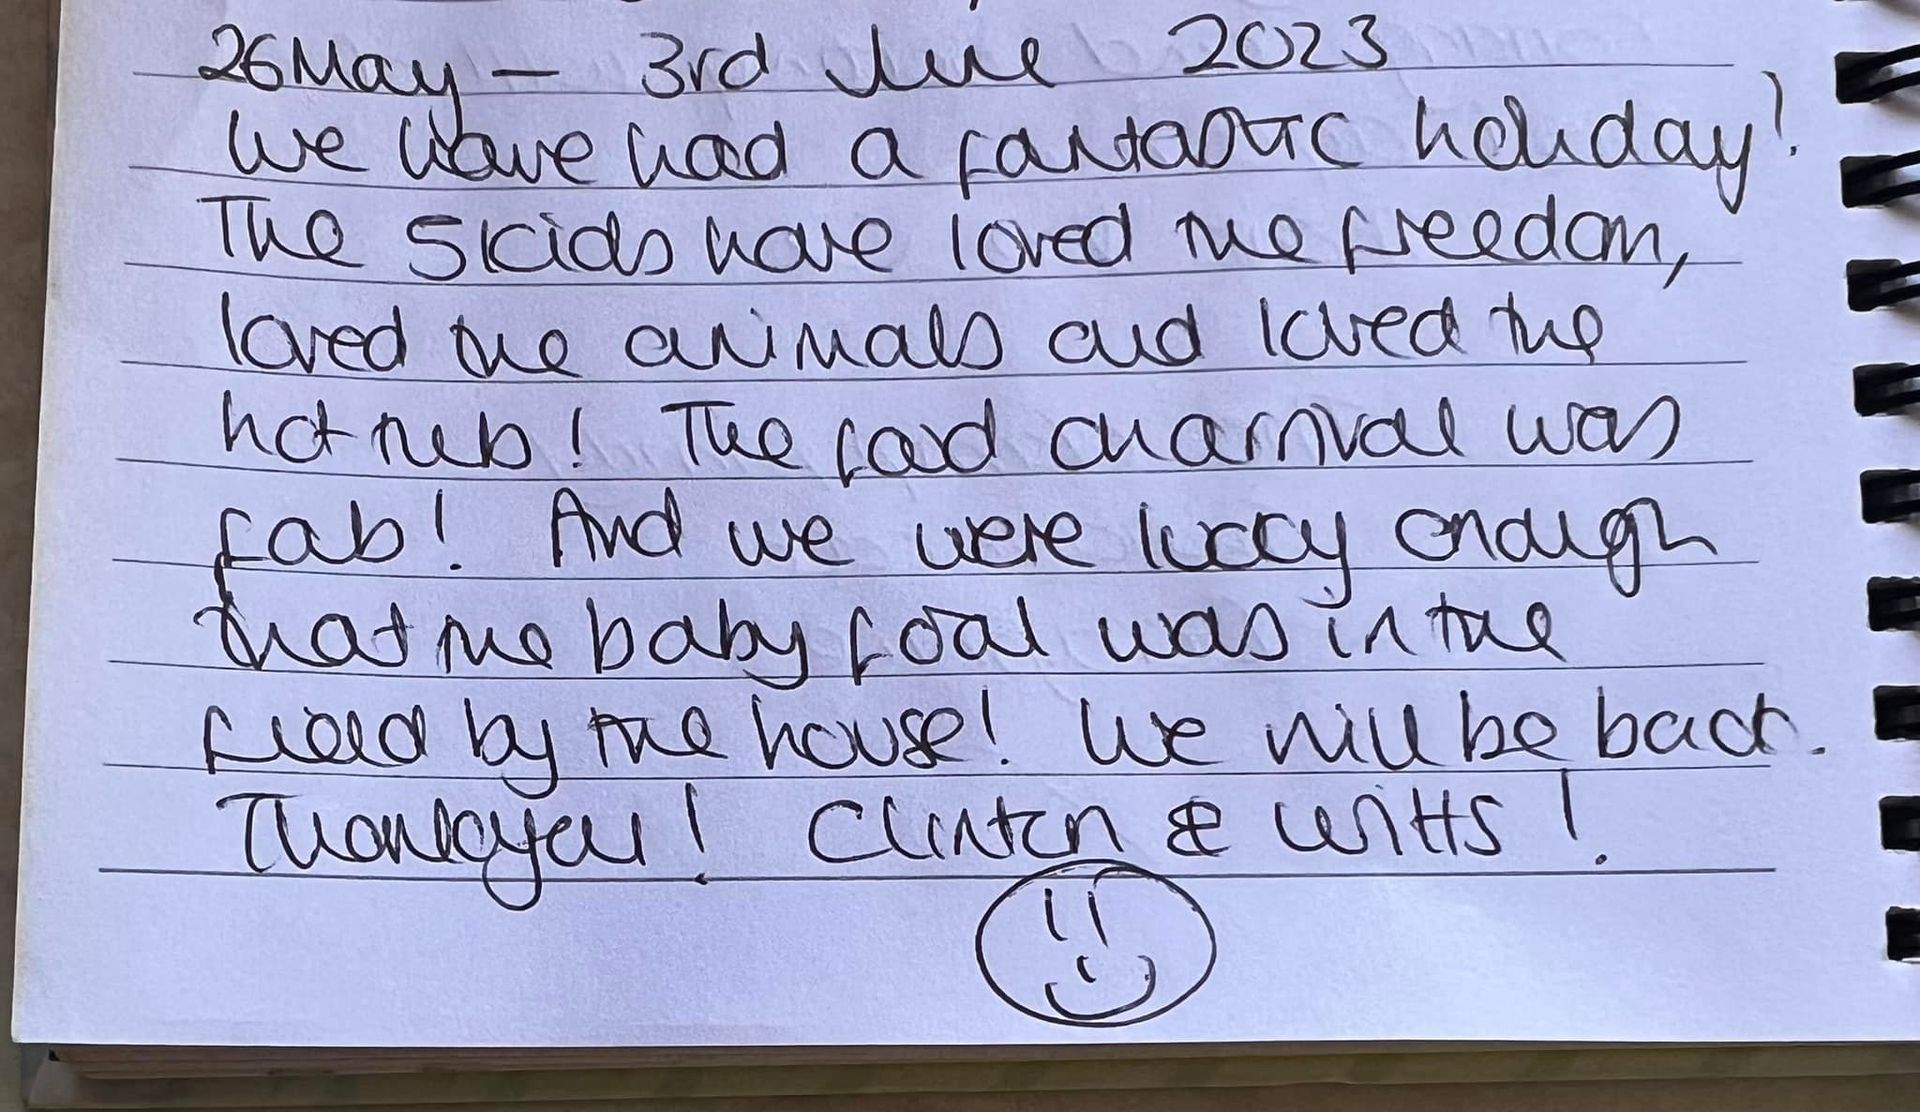 26 May – 3rd June 2023
We have had a fantastic holiday!
The 5 kids have loved the freedom,
loved the animals and loved the
hot tub! The food charnival was
fab! And we were lucky enough
that the baby foal was in the
field by the house! We will be back.
Thankyou! Clinton & Witts!